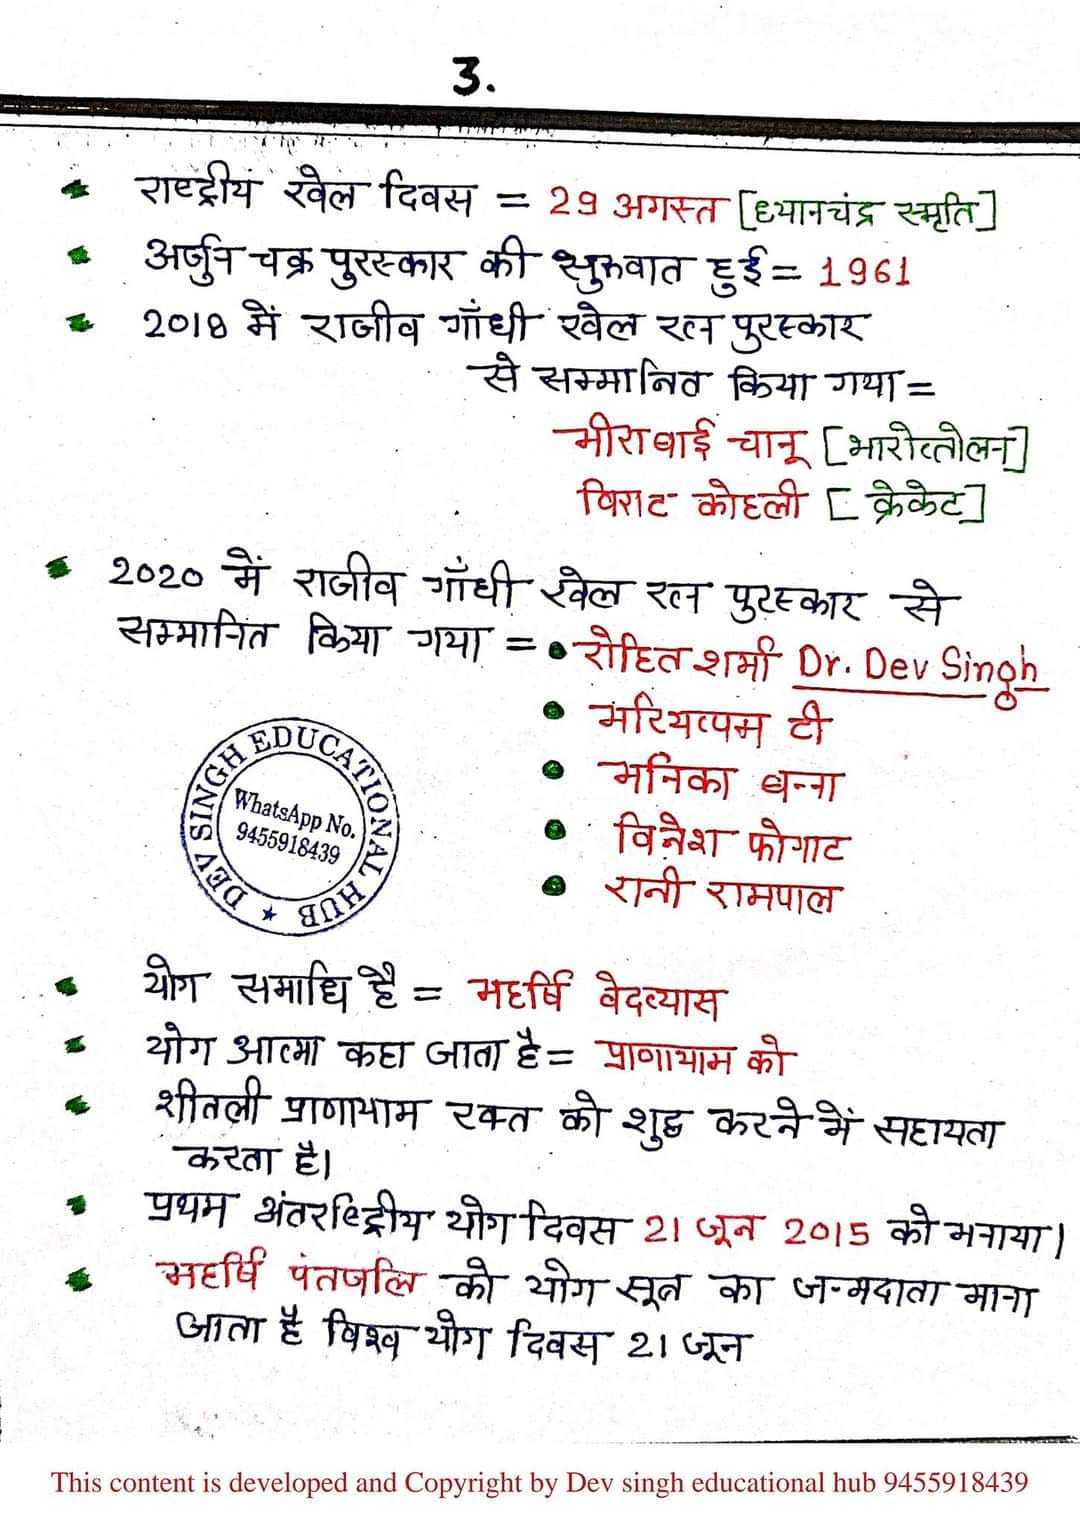 3.
राष्ट्रीय खेल दिवस = 29 अगस्त [ध्यानचंद्र स्मृति]
अर्जुन चक्र पुरस्कार की शुरुवात हुई = 1961
2018 में राजीव गाँधी खेल रत्न पुरस्कार
से सम्मानित किया गया =
मीराबाई चानू [भारोत्तोलन]
विराट कोहली [क्रेकेट]
2020 में राजीव गाँधी खेल रत्न पुरस्कार से
सम्मानित किया गया = • रोहित शर्मा Dr. Dev Singh
• मरियप्पम टी
• मनिका बन्ना
• विनेश फोगाट
• रानी रामपाल
DEV SINGH EDUCATIONAL HUB ★
WhatsApp No.
9455918439
योग समाधि है = महर्षि वेदव्यास
योग आत्मा कहा जाता है = प्राणायाम को
शीतली प्राणायाम रक्त को शुद्ध करने में सहायता
करता है।
प्रथम अंतर्राष्ट्रीय योग दिवस 21 जून 2015 को मनाया।
महर्षि पंतजलि को योग सूत्र का जन्मदाता माना
जाता है विश्व योग दिवस 21 जून
This content is developed and Copyright by Dev singh educational hub 9455918439